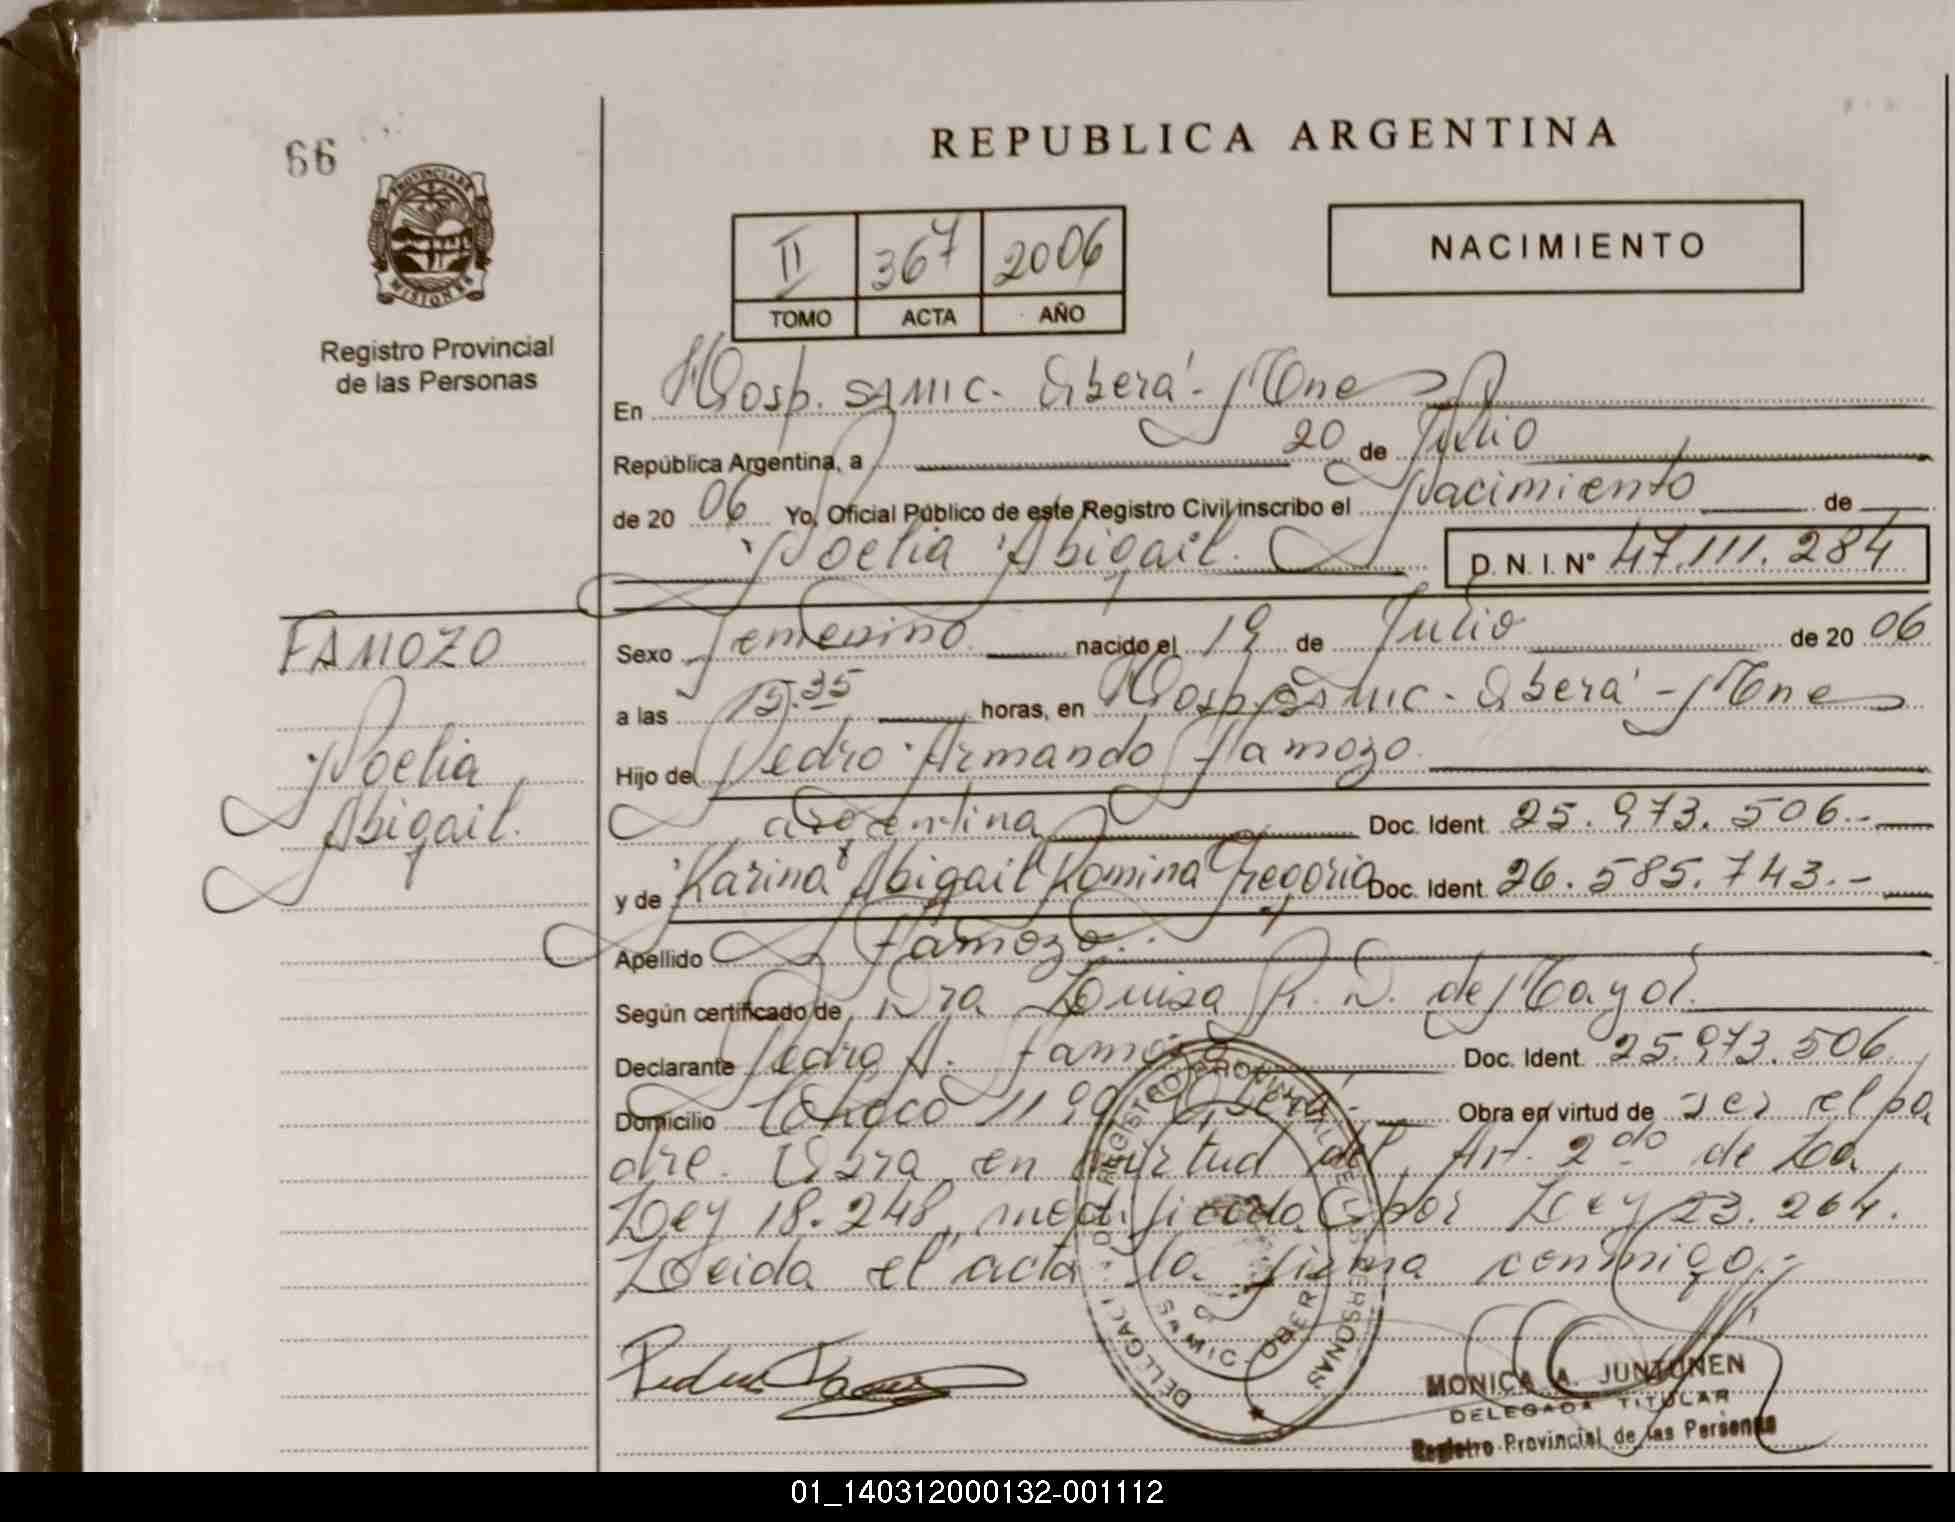 66
PROVINCIA DE
MISIONES
Registro Provincial
de las Personas
REPUBLICA ARGENTINA
II 367 2006
TOMO ACTA AÑO
NACIMIENTO
En Hosp. SAMIC - Oberá - Mnes
República Argentina, a 20 de Julio
de 20 06 Yo, Oficial Público de este Registro Civil inscribo el Nacimiento de
Noelia Abigail. D. N. I. N° 47.111.284
FAMOZO
Noelia
Abigail.
Sexo Femenino nacido el 19 de Julio de 20 06
a las 15:35 horas, en Hosp. SAMIC - Oberá - Mnes
Hijo de Pedro Armando Famozo.
argentina Doc. Ident. 25.973.506.-
y de Karina Abigail Romina Gregorio Doc. Ident. 26.585.743.-
Apellido Famozo.
Según certificado de Dra Luisa R. D. de Mayol.
Declarante Pedro A. Famozo Doc. Ident. 25.973.506
Domicilio Chaco Oberá Obra en virtud de ser el pa
dre. Obra en virtud del Art. 2do de La
Ley 18.248, modificada por Ley 23.264.
Leida el acta la firma conmigo.-
DELEGACION REGISTRO PROVINCIAL DE LAS PERSONAS
SAMIC - OBERA
MONICA A. JUNTUNEN
DELEGADA TITULAR
Registro Provincial de las Personas
01_140312000132-001112